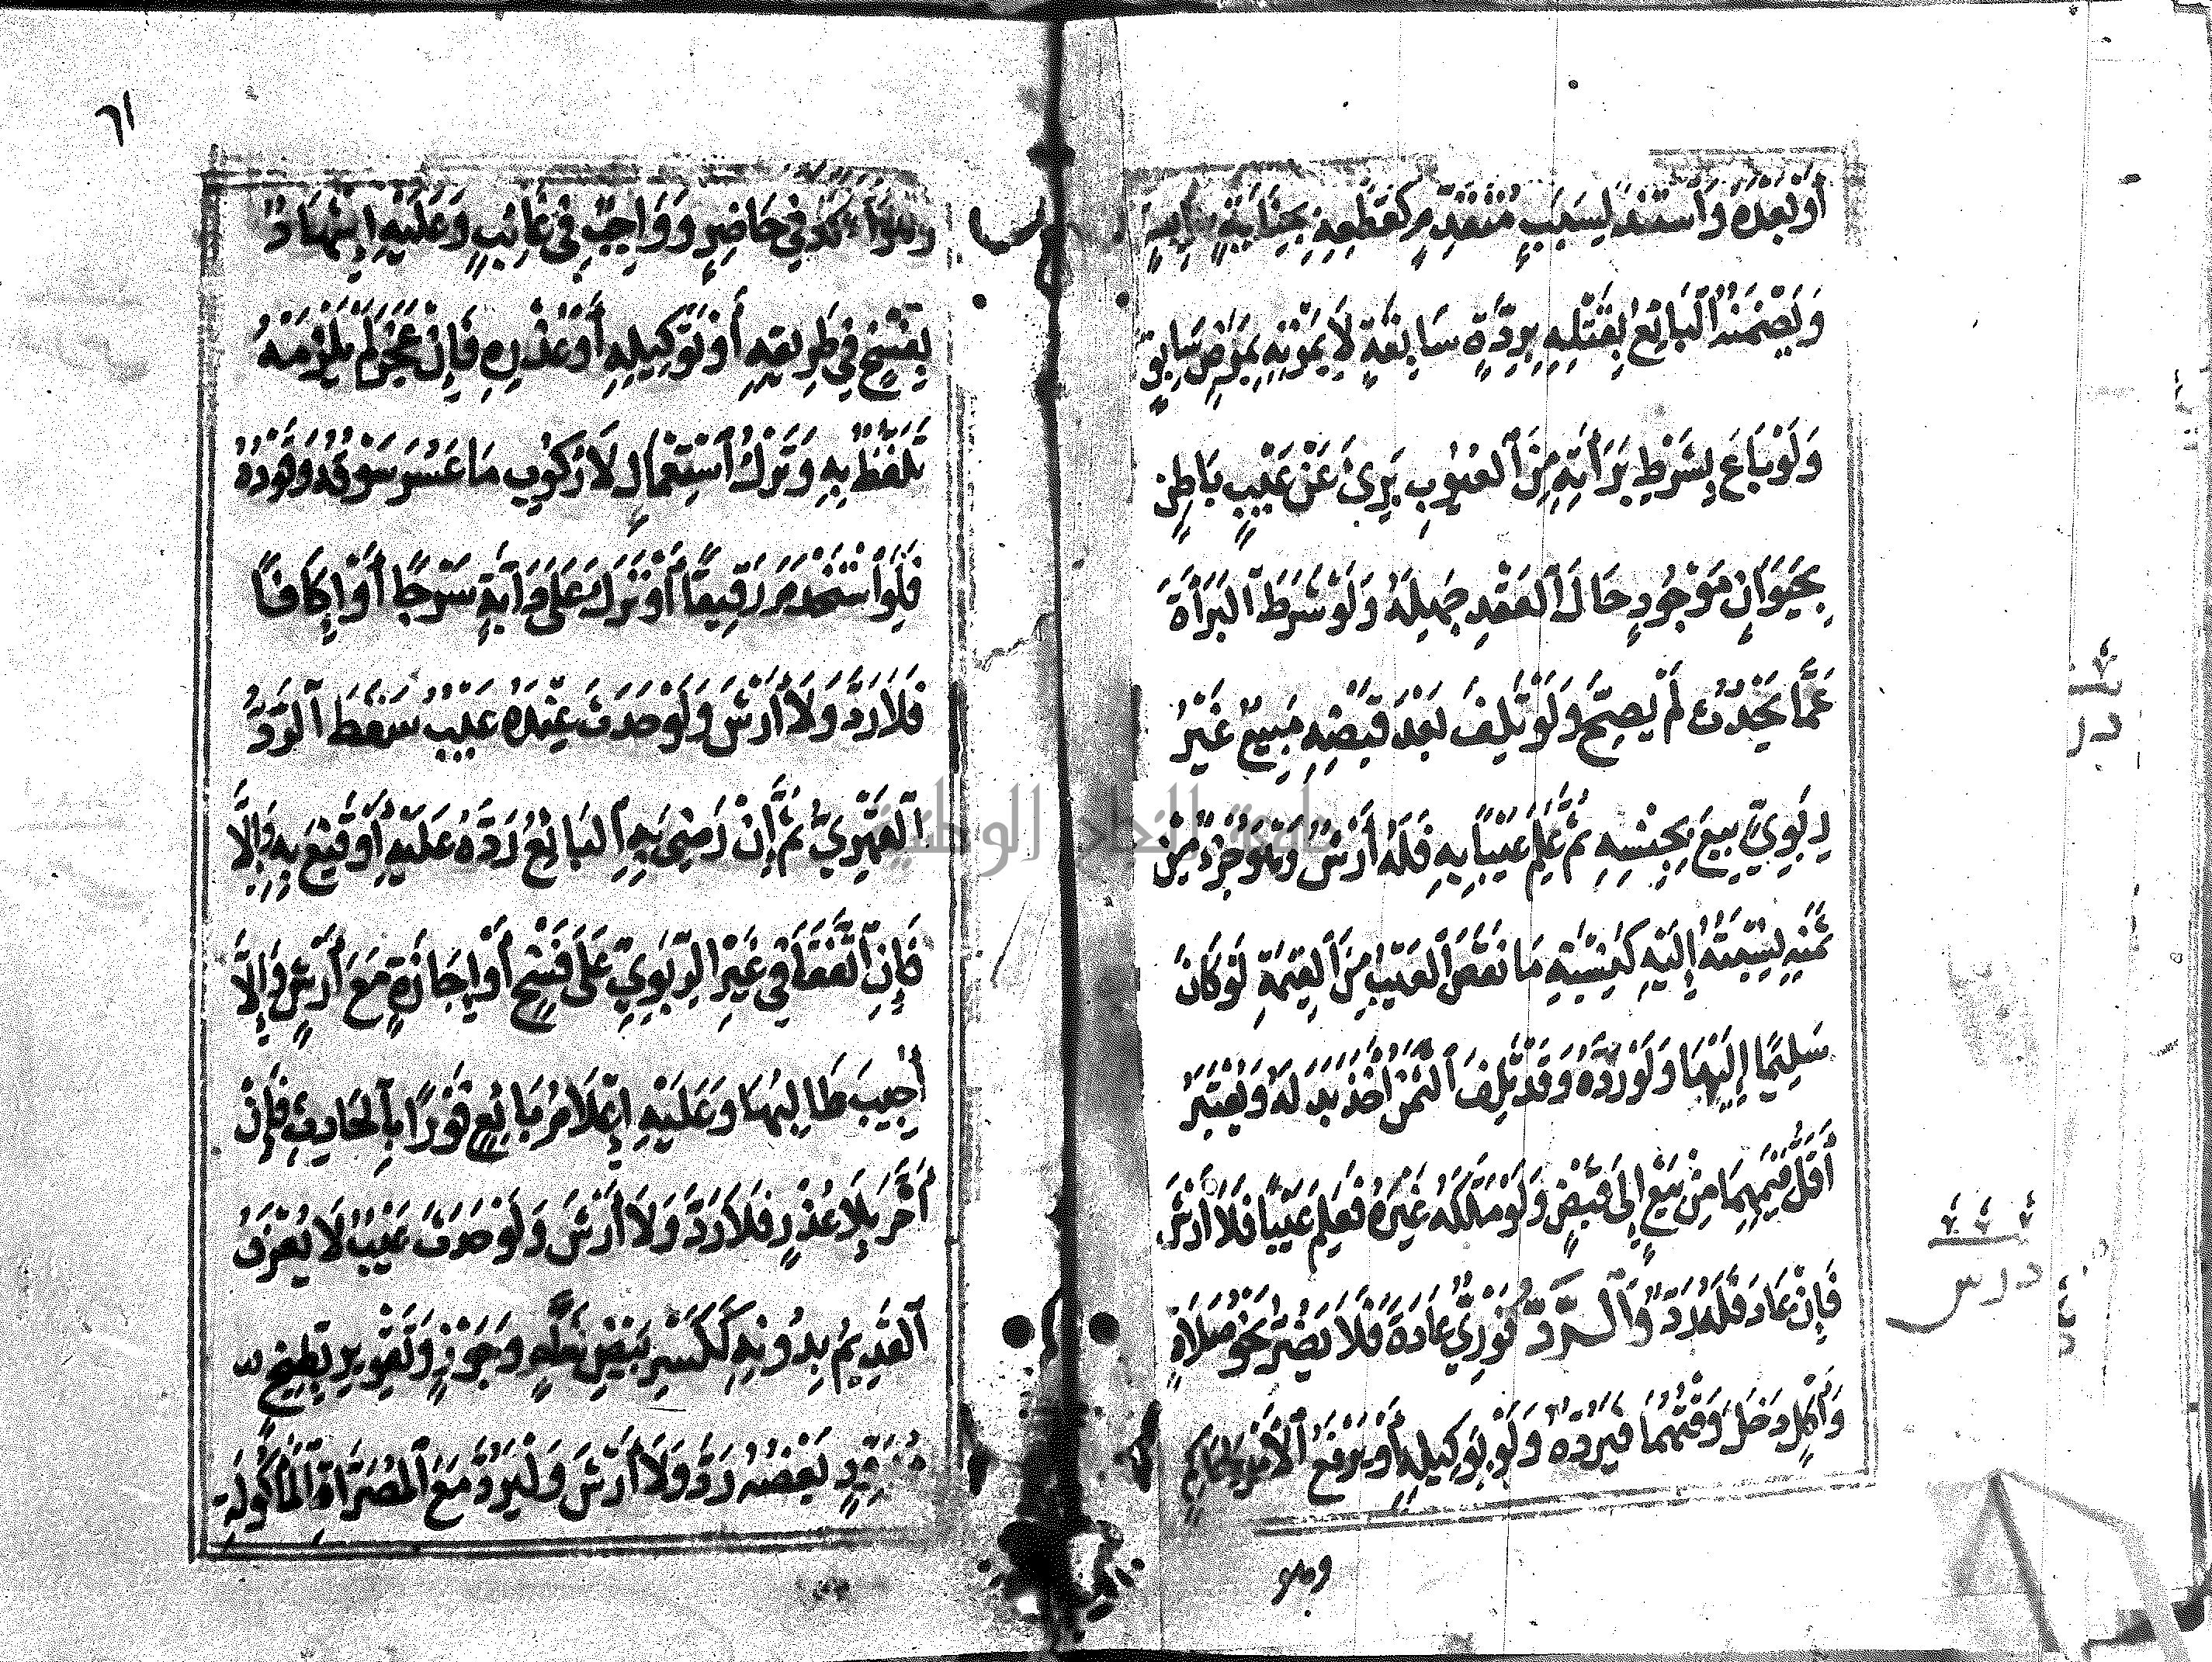 أَوْ بَعْدَهُ وَاسْتَنَدَ لِسَبَبٍ مُتَقَدِّمٍ كَقَطْعِهِ بِجِنَايَةٍ سَابِقَةٍ
وَيَضْمَنُهُ الْبَائِعُ بِقَتْلِهِ بِرِدَّةٍ سَابِقَةٍ لَا بِمَوْتِهِ بِمَرَضٍ سَابِقٍ
وَلَوْ بَاعَ بِشَرْطِ بَرَاءَتِهِ مِنَ الْعُيُوبِ بَرِئَ عَنْ عَيْبٍ بَاطِنٍ
بِحَيَوَانٍ مَوْجُودٍ حَالَ الْعَقْدِ جَهِلَهُ وَلَوْ شَرَطَ الْبَرَاءَةَ
عَمَّا يَحْدُثُ لَمْ يَصِحَّ وَلَوْ تَلِفَ بَعْدَ قَبْضِهِ مَبِيعٌ غَيْرُ
رِبَوِيٍّ بِيعَ بِجِنْسِهِ ثُمَّ عَلِمَ عَيْبًا بِهِ فَلَهُ أَرْشٌ وَهُوَ جُزْءٌ مِنْ
ثَمَنِهِ نِسْبَتُهُ إِلَيْهِ كَنِسْبَةِ مَا نَقَصَ الْعَيْبُ مِنَ الْقِيمَةِ لَوْ كَانَ
سَلِيمًا إِلَيْهَا وَلَوْ رَدَّهُ وَقَدْ تَلِفَ الثَّمَنُ أَخَذَ بَدَلَهُ وَيُعْتَبَرُ
أَقَلُّ قِيَمِهِمَا مِنْ بَيْعٍ إِلَى قَبْضٍ وَلَوْ مَلَكَهُ غَيْرُهُ فَعَلِمَ عَيْبًا فَلَا أَرْشَ
فَإِنْ عَادَ فَلَهُ رَدٌّ وَالرَّدُّ فَوْرِيٌّ عَادَةً فَلَا يَضُرُّ نَحْوُ صَلَاةٍ
وَأَكْلٍ دَخَلَ وَقْتُهُمَا فَيَرُدُّهُ وَلَوْ بِوَكِيلِهِ أَوْ يَرْفَعُ الْأَمْرَ لِحَاكِمٍ
وهو
درس
درس
٦١
وَهُوَ آكَدُ فِي حَاضِرٍ وَوَاجِبٌ فِي غَائِبٍ وَعَلَيْهِ إِشْهَادٌ
بِفَسْخٍ فِي طَرِيقِهِ أَوْ تَوْكِيلِهِ أَوْ عُذْرِهِ فَإِنْ عَجَزَ لَمْ يَلْزَمْهُ
تَلَفُّظٌ بِهِ وَتَرْكُ اسْتِعْمَالٍ لَا رُكُوبِ مَا عَسُرَ سَوْقُهُ وَقَوْدُهُ
فَلَوْ اسْتَخْدَمَ رَقِيقًا أَوْ تَرَكَ عَلَى دَابَّةٍ سَرْجًا أَوْ إِكَافًا
فَلَا رَدَّ وَلَا أَرْشَ وَلَوْ حَدَثَ عِنْدَهُ عَيْبٌ سَقَطَ الرَّدُّ
الْقَهْرِيُّ ثُمَّ إِنْ رَضِيَ بِهِ الْبَائِعُ رَدَّهُ عَلَيْهِ أَوْ قَنِعَ بِهِ وَإِلَّا
فَإِنِ اتَّفَقَا فِي غَيْرِ الرِّبَوِيِّ عَلَى فَسْخٍ أَوْ إِجَازَةٍ مَعَ أَرْشٍ وَإِلَّا
أُجِيبَ طَالِبُهَا وَعَلَيْهِ إِعْلَامُ بَائِعٍ فَوْرًا بِالْحَادِثِ فَإِنْ
أَخَّرَ بِلَا عُذْرٍ فَلَا رَدَّ وَلَا أَرْشَ وَلَوْ حَدَثَ عَيْبٌ لَا يُعْرَفُ
الْقَدِيمُ بِدُونِهِ كَكَسْرِ بَيْضِ نَعَامٍ وَجَوْزٍ وَتَقْوِيرِ بِطِّيخٍ
مُدَوِّدٍ بَعْضُهُ رَدَّ وَلَا أَرْشَ وَلْيَرُدَّ مَعَ الْمُصَرَّاةِ الْمَأْكُولَةِ